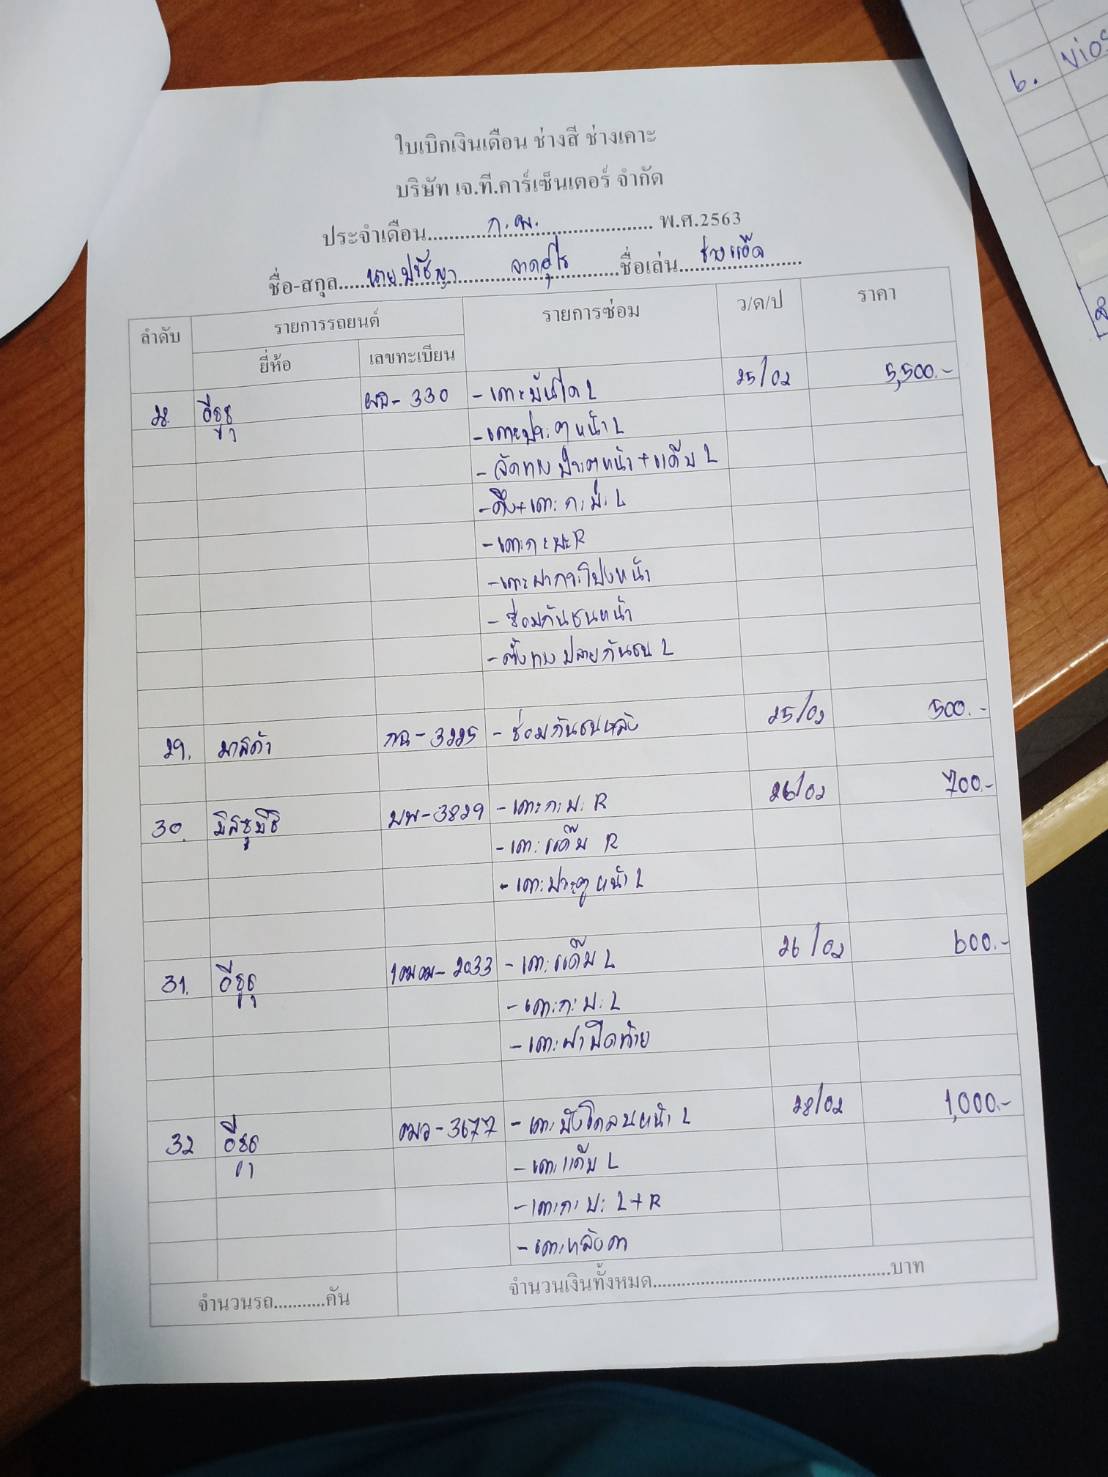 ใบเบิกเงินเดือน ช่างสี ช่างเคาะ
บริษัท เจ.ที.คาร์เซ็นเตอร์ จำกัด
ประจำเดือน ก.พ. พ.ศ.2563
ชื่อ-สกุล นายปรัชญา ชื่อเล่น ช่างแอ๊ด
ลำดับ รายการรถยนต์ รายการซ่อม ว/ด/ป ราคา
ยี่ห้อ เลขทะเบียน
28. อีซูซุ ผฉ-330 - เคาะบันได L 25/02 5,500.-
- เคาะประตูหน้า L
- จัดทรงประตูหน้า+แค๊บ L
- ดึง+เคาะ ก.บะ L
- เคาะกะบะ R
- เคาะฝากระโปงหน้า
- ซ่อมกันชนหน้า
- ตั้งทรงปลายกันชน L
29. มาสด้า กฉ-3225 - ซ่อมกันชนหลัง 25/02 500.-
30. มิสซูบิชิ บพ-3829 - เคาะกะบะ R 26/02 700.-
- เคาะแค๊บ R
- เคาะประตูหน้า L
31. อีซูซุ 1ฒฒ-2033 - เคาะแค๊บ L 26/02 600.-
- เคาะกะบะ L
- เคาะฝาปิดท้าย
32 อีซูซุ ฒว-3677 - เคาะบังโคลนหน้า L 28/02 1,000.-
- เคาะแค๊บ L
- เคาะกะบะ L+R
- เคาะหลังคา
จำนวนรถ...........คัน จำนวนเงินทั้งหมด..........บาท
6. Vios